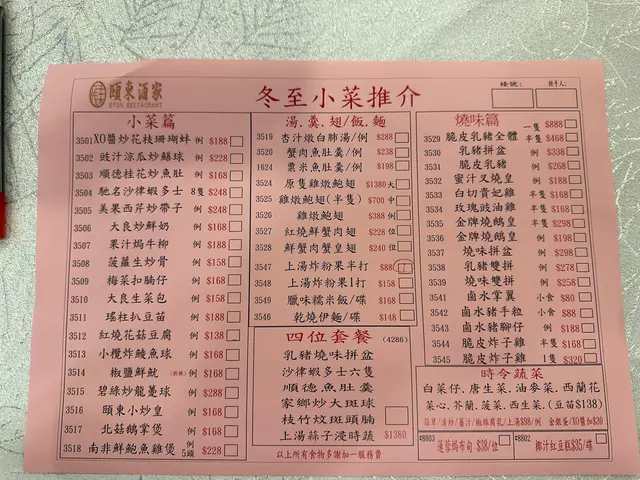 頤東酒家
ETON RESTAURANT
冬至小菜推介
檯號:
經手人:
小菜篇
3501 XO醬炒花枝珊瑚蚌 例 $188
3502 豉汁涼瓜炒鱔球 例 $228
3503 順德桂花炒魚肚 例 $168
3504 馳名沙律蝦多士 8隻 $248
3505 美果西芹炒帶子 例 $248
3506 大良炒鮮奶 例 $168
3507 果汁焗牛柳 例 $188
3508 菠蘿生炒骨 例 $158
3509 梅菜扣腩仔 例 $168
3510 大良生菜包 例 $158
3511 瑤柱扒豆苗 例 $188
3512 紅燒花菇豆腐 例 $138
3513 小欖炸鯪魚球 例 $168
3514 椒鹽鮮魷 例 $168
3515 碧綠炒龍躉球 例 $288
3516 頤東小炒皇 例 $168
3517 北菇鵝掌煲 例 $168
3518 南非鮮鮑魚雞煲 例 5頭 $228
湯.羹.翅/飯.麵
3519 杏汁燉白肺湯/例 $288
3520 蟹肉魚肚羹/例 $238
1624 粟米魚肚羹/例 $198
3524 原隻雞燉鮑翅 $1380 大
3525 雞燉鮑翅(半隻) $700 中
3526 雞燉鮑翅 $388 例
3527 紅燒鮮蟹肉翅 $228 位
3528 鮮蟹肉蟹皇翅 $240 位
3547 上湯炸粉果半打 $88
3548 上湯炸粉果1打 $158
3549 臘味糯米飯/碟 $168
3546 乾燒伊麵/碟 $148
四位套餐 (4286)
乳豬燒味拼盆
沙律蝦多士六隻
順德魚肚羹
家鄉炒大斑球
枝竹炆斑頭腩
上湯蒜子浸時蔬 $1380
以上所有食物多謝加一服務費
燒味篇
一隻 $888
3529 脆皮乳豬全體 半隻 $468
3530 乳豬拼盆 例 $338
3531 脆皮乳豬 例 $268
3532 蜜汁叉燒皇 例 $168
3533 白切貴妃雞 半隻 $168
3534 玫瑰豉油雞 半隻 $168
3535 金牌燒鵝皇 半隻 $298
3536 金牌燒鵝皇 例 $198
3537 燒味拼盆 例 $298
3538 乳豬雙拼 例 $278
3539 燒味雙拼 例 $258
3541 鹵水掌翼 小食 $80
3542 鹵水豬手粒 小食 $88
3543 鹵水豬腳仔 例 $188
3544 脆皮炸子雞 半隻 $168
3545 脆皮炸子雞 1隻 $320
時令蔬菜
白菜仔.唐生菜.油麥菜.西蘭花
菜心.芥蘭.菠菜.西生菜.(豆苗$138)
蒜茸/清炒/薑汁/椒絲腐乳/上湯$98/例 金銀蛋/XO醬加$30
#8803
蓮蓉焗布甸 $38/位
#8802
椰汁紅豆糕$35/碟